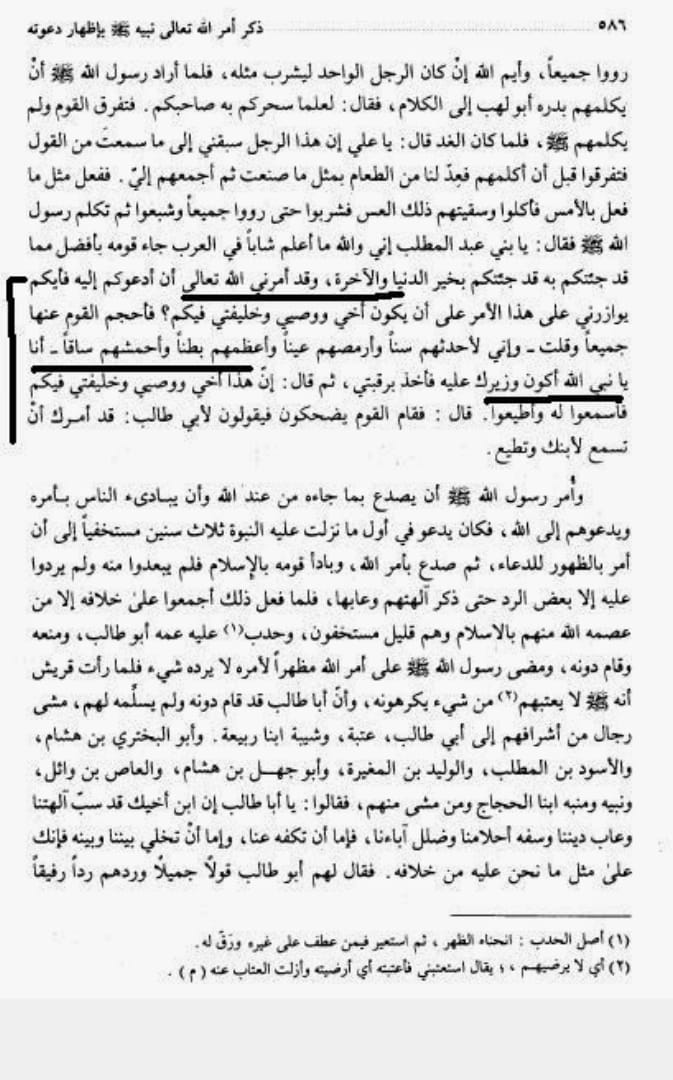 ٥٨٦ ذكر أمر الله تعالى نبيه ﷺ بإظهار دعوته
رووا جميعاً، وأيم الله إنْ كان الرجل الواحد ليشرب مثله، فلما أراد رسول الله ﷺ أنْ
يكلمهم بدره أبو لهب إلى الكلام، فقال: لعلما سحركم به صاحبكم. فتفرق القوم ولم
يكلمهم ﷺ، فلما كان الغد قال: يا علي إن هذا الرجل سبقني إلى ما سمعتَ من القول
فتفرقوا قبل أن أكلمهم فعِدّ لنا من الطعام بمثل ما صنعت ثم أجمعهم إليّ. ففعل مثل ما
فعل بالأمس فأكلوا وسقيتهم ذلك العس فشربوا حتى رووا جميعاً وشبعوا ثم تكلم رسول
الله ﷺ فقال: يا بني عبد المطلب إني والله ما أعلم شاباً في العرب جاء قومه بأفضل مما
قد جئتكم به قد جئتكم بخير الدنيا والآخرة، وقد أمرني الله تعالى أن أدعوكم إليه فأيكم
يوازرني على هذا الأمر على أن يكون أخي ووصيي وخليفتي فيكم؟ فأحجم القوم عنها
جميعاً وقلت ـ وإني لأحدثهم سناً وأرمصهم عيناً وأعظمهم بطناً وأحمشهم ساقاً ـ أنا
يا نبي الله أكون وزيرك عليه فأخذ برقبتي، ثم قال: إنّ هذا أخي ووصيي وخليفتي فيكم
فأسمعوا له وأطيعوا. قال: فقام القوم يضحكون فيقولون لأبي طالب: قد أمرك أنْ
تسمع لأبنك وتطيع.
وأُمر رسول الله ﷺ أن يصدع بما جاءه من عند الله وأن يبادىء الناس بأمره
ويدعوهم إلى الله، فكان يدعو في أول ما نزلت عليه النبوة ثلاث سنين مستخفياً إلى أن
أمر بالظهور للدعاء، ثم صدع بأمر الله، وبادأ قومه بالإسلام فلم يبعدوا منه ولم يردوا
عليه إلا بعض الرد حتى ذكر آلهتهم وعابها، فلما فعل ذلك أجمعوا علىٰ خلافه إلا من
عصمه الله منهم بالاسلام وهم قليل مستخفون، وحدب(١) عليه عمه أبو طالب، ومنعه
وقام دونه، ومضى رسول الله ﷺ على أمر الله مظهراً لأمره لا يرده شيء فلما رأت قريش
أنه ﷺ لا يعتبهم(٢) من شيء يكرهونه، وأنّ أبا طالب قد قام دونه ولم يسلّمه لهم، مشى
رجال من أشرافهم إلى أبي طالب، عتبة، وشيبة ابنا ربيعة. وأبو البختري بن هشام،
والأسود بن المطلب، والوليد بن المغيرة، وأبو جهل بن هشام، والعاص بن وائل،
ونبيه ومنبه ابنا الحجاج ومن مشى منهم، فقالوا: يا أبا طالب إن ابن أخيك قد سبّ آلهتنا
وعاب ديننا وسفه أحلامنا وضلل آباءنا، فإما أن تكفه عنا، وإما أنْ تخلي بيننا وبينه فإنك
علىٰ مثل ما نحن عليه من خلافه. فقال لهم أبو طالب قولاً جميلاً وردهم رداً رفيقاً
(١) أصل الحدب: انحناء الظهر، ثم استعير فيمن عطف على غيره ورَقّ له.
(٢) أي لا يرضيهم، ؛ يقال استعتبني فأعتبته أي أرضيته وأزلت العتاب عنه (م).